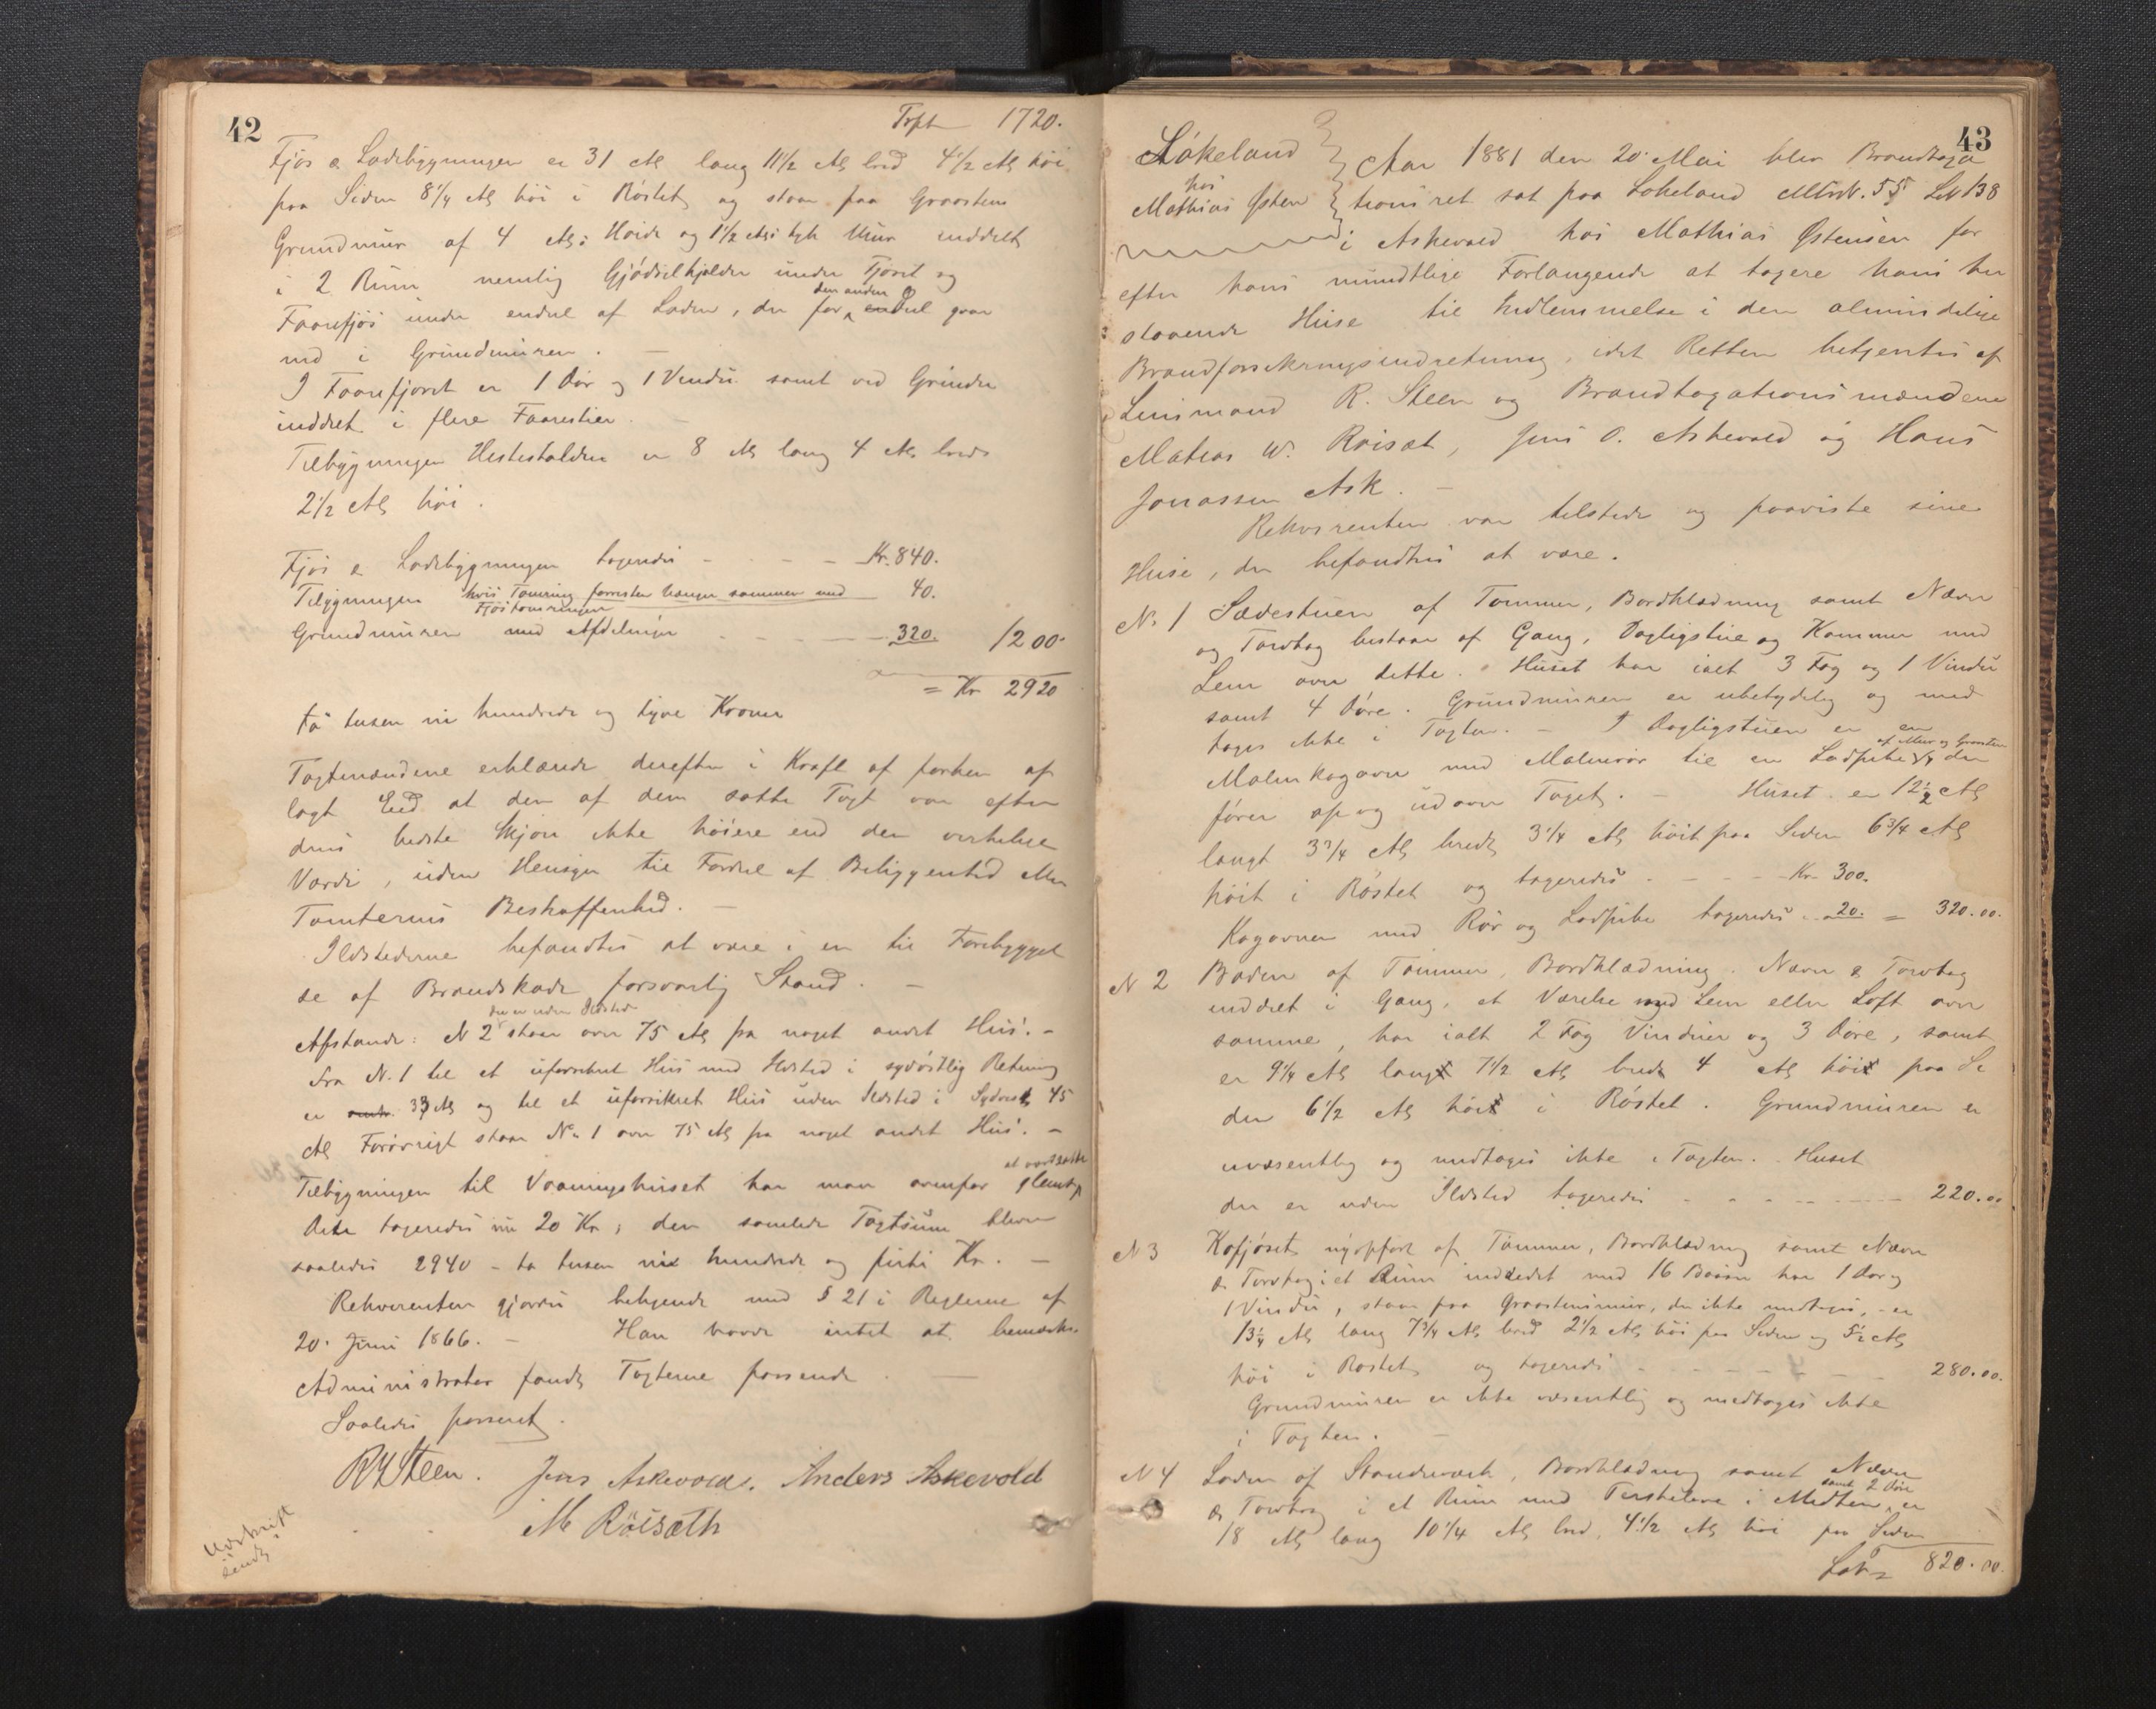 42
Trpt 1720.
Fjøs & Ladebygningen er 31 Al lang 11½ Al bred 4½ Al høi
paa Siden 8¼ Al høi i Røstet og staar paa Graastens
Grundmur af 4 Al: Høide og 1½ Als tyk Mur inddelt
i 2 Rum nemlig Gjødselkjelder under Fjøset og
den anden
Faarefjøs under endeel af Laden, der for endeel gaar
ned i Grundmuren. —
I Faarefjøset er 1 Dør og 1 Vindu samt ved Grinder
inddet i flere Faarestier. —
Tilbygningen Hestestalden er 8 Al lang 4 Al bred
2½ Al høi.
Fjøs & Ladebygningen taxeredes - - - - Kr. 840.
Tilbygningen hvis Tømring forresten hænger sammen med 40.
Fjøstømringen
Grundmuren med Afdelinger - - - - 320. 1200.
= Kr 2920
to tusen ni hundrede og tyve Kroner
Taxtmændene erklærede derefter i Kraft af forhen af
lagt Eed at den af dem satte Taxt var efter
deres bedste Skjøn ikke høiere end den virkelige
Værdi, uden Hensyn til Fordel af Beliggenhed eller
Tomternes Beskaffenhed. —
Ildstederne befandtes at være i en til Forebyggel
se af Brandskade forsvarlig Stand. —
der er uden Ildsted
Afstande: N 2 staar over 75 Al fra noget andet Hus. —
Fra N. 1 til et uforsikret Hus med Ildsted i sydøstlig Retning
er 33 Al og til et uforsikret Hus uden Ildsted i Sydvest 45
Al Forøvrigt staar No 1 over 75 Al fra noget andet Hus. —
at værdsætte
Tilbygningen til Vaaningshuset har man ovenfor glemt
Dette taxeredes nu 20 Kr, den samlede Taxtsum bliver
saaledes 2940 - to tusen ni hundrede og firti Kr. —
Rekvirenten gjordes bekjendt med § 21 i Reglerne af
20. Juni 1866. — Han havde intet at bemærke.
Administrator fandt Taxterne passende. —
Saaledes passeret.
R Steen. Jens Askevold. Anders Askevold
M Röisæth
Udskrift
sendt
43
Løkeland
hos
Mathias Østen
Aar 1881 den 20. Mai blev Brandtaxa
tions ret sat paa Løkeland Mtrk. 55 LN 138
i Askevold hos Mathias Østensen for
efter hans mundtlige Forlangende at taxere hans her
staaende Huse til Indlemmelse i den almindelige
Brandforsikringsindretning, idet Retten betjentes af
Lensmand R. Steen og Brandtaxationsmændene
Matias W. Röisæt, Jens O. Askevold og Hans
Jonassen Ask. —
Rekvirenten var tilstede og paaviste sine
Huse, der befandtes at være.
No 1 Sædestuen af Tømmer, Bordklædning samt Næver
og Torvtag bestaar af Gang, Dagligstue og Kammer med
Lem over dette. Huset har ialt 3 Fag og 1 Vindu
samt 4 Døre. Grundmuren er ubetydelig og med
tages ikke i Taxten. — I Dagligstuen er en
af Mur og Graasten
Malmkogovn med Malmrør til en Ladpibe der
fører op og ud over Taget. — Huset er 12½ Al
langt 3¾ Al bredt 3¼ Al høit paa Siden 6¾ Al
høit i Røstet og taxeredes - - - - Kr 300.
Kogovnen med Rør og Ladpibe taxeredes - 20. = 320.00.
N 2 Boden af Tømmer, Bordklædning. Næver & Torvtag
inddet i Gang, et Værelse med Lem eller Loft over
samme, har ialt 2 Fag Vinduer og 3 Døre, samt
er 9¼ Al lang 7½ Al bred 4 Al høi paa Si
den 6½ Al høi i Røstet. Grundmuren er
uvæsentlig og medtages ikke i Taxten. Huset
der er uden Ildsted taxeredes - - - - 220.00
N 3 Kofjøset nyopført af Tømmer, Bordklædning samt Næver
& Torvtag i et Rum inddedet med 16 Baase har 1 Dør og
1 Vindu, staar paa Graastensmur, der ikke medtages, - er
13¼ Al lang 7¾ Al bred 2½ Al høi paa Siden og 5½ Al
høi i Røstet og taxeredes - - - - 280.00.
Grundmuren er ikke væsentlig og medtages ikke
i Taxten. —
N 4 Laden af Standværk, Bordklædning samt Næver
samt 2 Døre
& Torvtag i et Rum med Terskelove i Midten, er
18 Al lang 10¼ Al bred, 4½ Al høi paa Siden
Lat. 820.00.